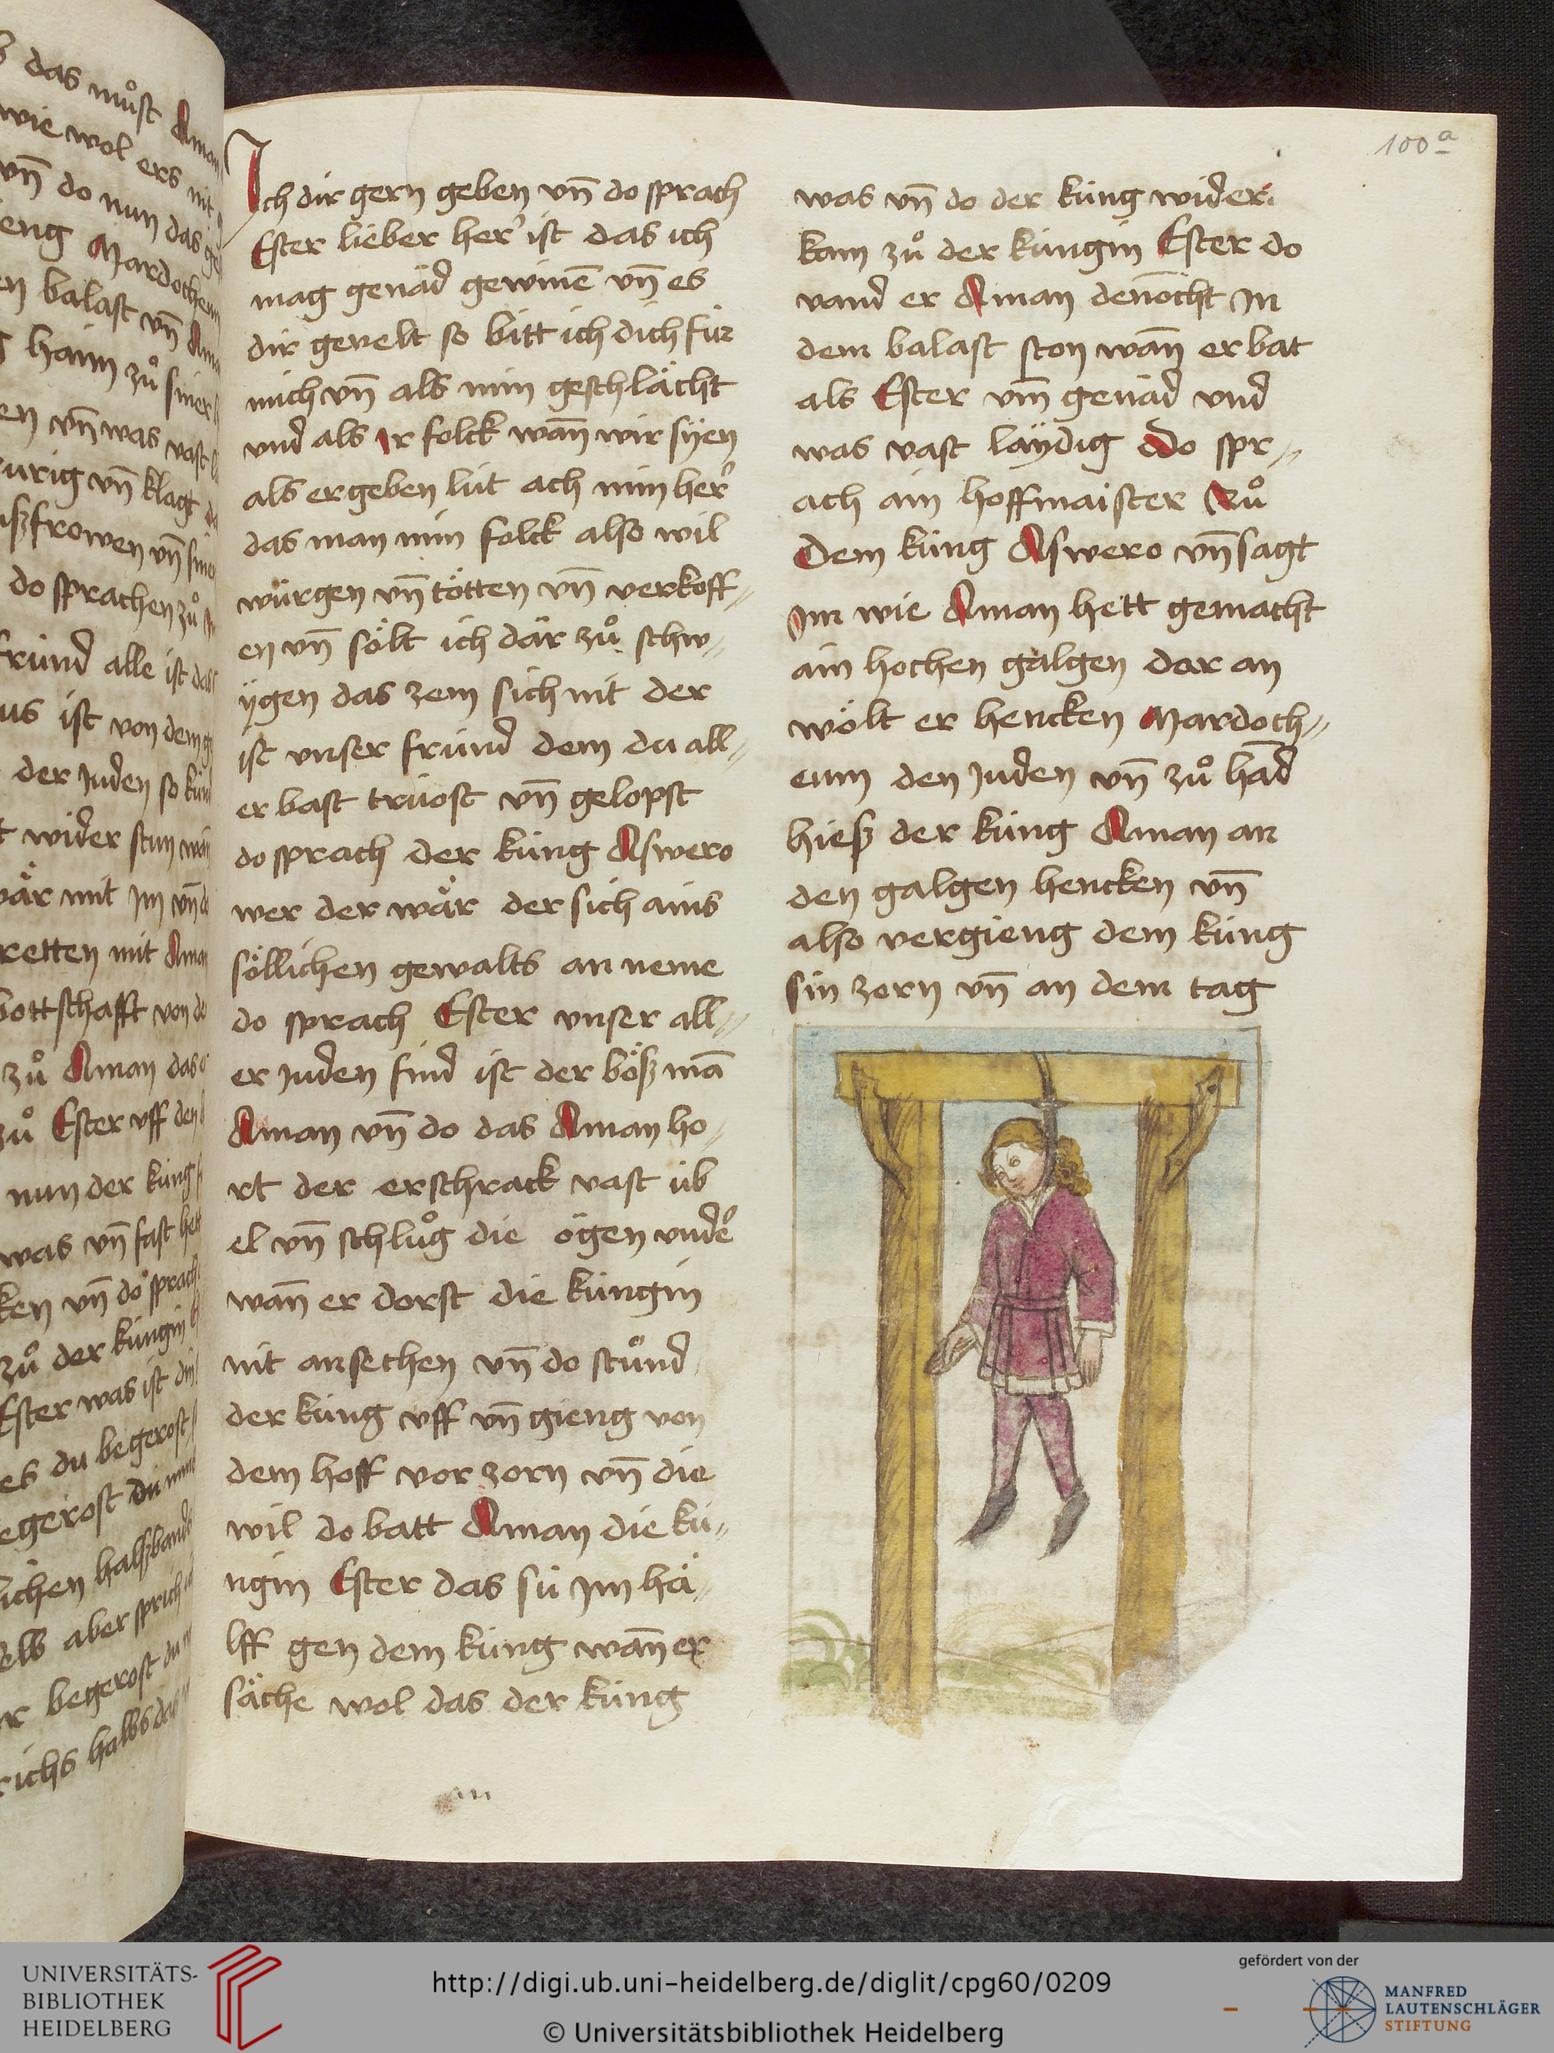 das muͦst Aman
wie wol ers nit
vn̄ do nun das
gieng Mardocheus
balast vn̄
haim zuͦ siner
vn̄ was vast
trurig vn̄ klag
frowen vn̄ sine
do sprachen zuͦ
fründ alle ist das
ist von dem
der Juden so
wider stun
wär mit Jm vn̄
retten mit Aman
bottschafft von
zuͦ Aman das
zuͦ Ester vff den
nun der küng
was vn̄ fast hett
vn̄ do sprach
zuͦ der küngin
Ester was ist din
es du begerost
begerost du
halßband
aber sprich
begerost du
halbs das
100 a
Ich dir gern geben vn̄ do sprach
Ester lieber her ist das ich
mag genäd gewinē vn̄ es
dir geuelt so bitt ich dich für
mich vn̄ als min geschlächt
vnd als ir folck wan̄ wir syen
als ergeben lüt ach min her
das man min folck also wil
würgen vn̄ tötten vn̄ verkoff„
en vn̄ sölt ich där zuͦ schw„
ÿgen das zem sich nit der
ist vnser fründ dem du all„
er bast trüost vn̄ gelopst
do sprach der küng Aswero
wer der wär der sich ains
söllichen gewalts an neme
do sprach Ester vnser all„
er Juden find ist der böß mā
Aman vn̄ do das Aman ho„
rt der erschrack vast üb
el vn̄ schluͦg die ögen vnder
wan̄ er dorst die küngin
nit ansechen vn̄ do stuͦnd
der küng vff vn̄ gieng von
dem hoff vor zorn vn̄ die
wil do batt Aman die kü„
ngin Ester das sü Jm hä„
lff gen dem küng wan̄ er
säche wol das der küng
was vn̄ do der küng wider
kam zuͦ der küngin Ester do
vand er Aman den̄ocht Jn
dem balast ston wan̄ er bat
als Ester vm̄ genäd vnd
was vast laÿdig do spr„
ach ain hoffmaister zuͦ
Dem küng Aswero vn̄ sagt
Jm wie Aman hett gemacht
ain hochen galgen dar an
wölt er hencken Mardoch„
eum den Juden vn̄ zuͦ hād
hieß der küng Aman an
den galgen hencken vn̄
also vergieng dem küng
sin zorn vn̄ an dem tag
UNIVERSITÄTS-
BIBLIOTHEK
HEIDELBERG
http://digi.ub.uni-heidelberg.de/diglit/cpg60/0209
© Universitätsbibliothek Heidelberg
gefördert von der
MANFRED
LAUTENSCHLÄGER
STIFTUNG